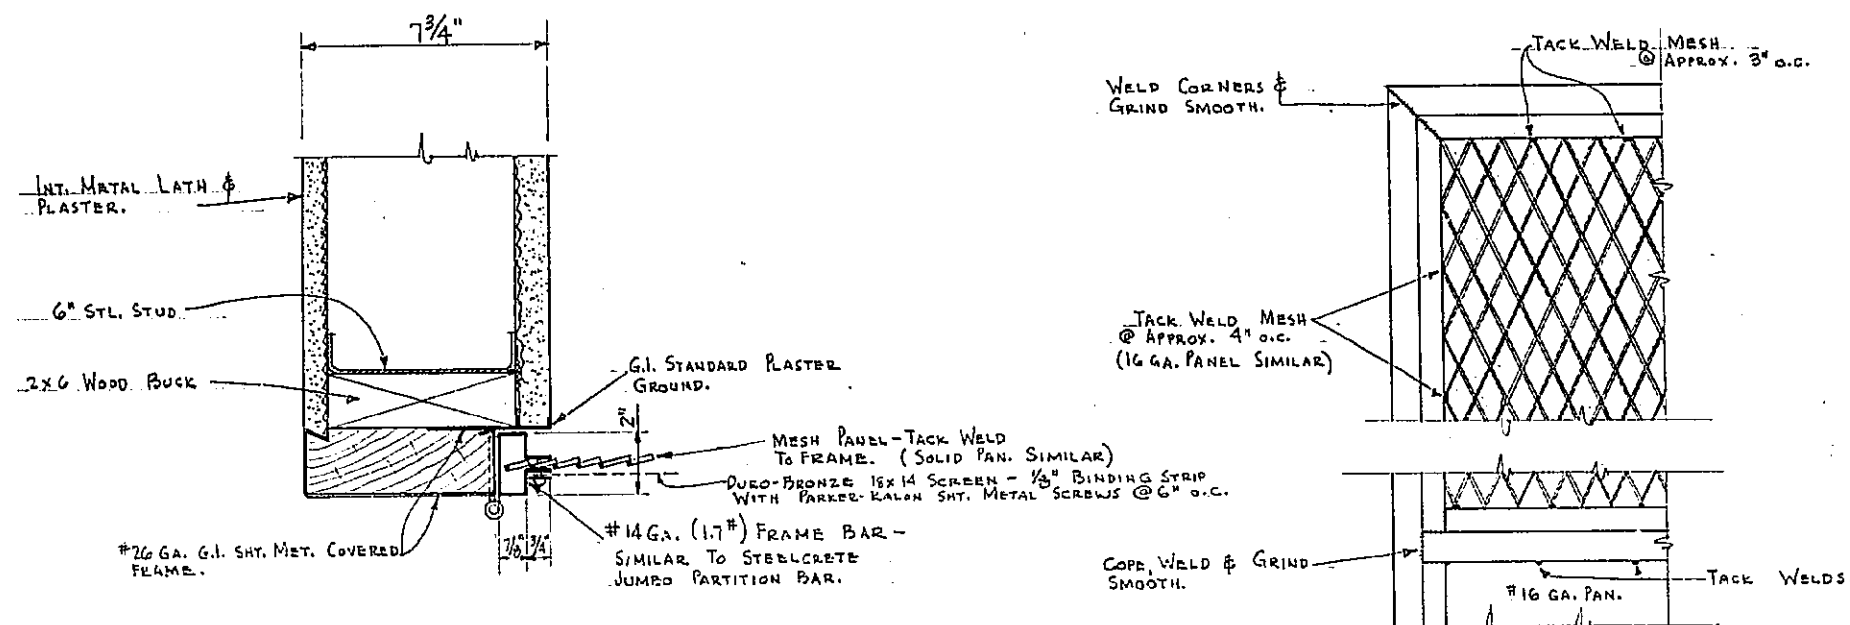 7 3/4"
INT. METAL LATH &
PLASTER.
6" STL. STUD
2X6 WOOD BUCK
#26 GA. G.I. SHT. MET. COVERED
FRAME.
G.I. STANDARD PLASTER
GROUND.
2"
MESH PANEL-TACK WELD
TO FRAME. (SOLID PAN. SIMILAR)
DURO-BRONZE 18X14 SCREEN - 1/8" BINDING STRIP
WITH PARKER-KALON SHT. METAL SCREWS @ 6" O.C.
7/8" 3/4"
#14 GA. (1.7#) FRAME BAR-
SIMILAR TO STEELCRETE
JUMBO PARTITION BAR.
TACK WELD MESH
@ APPROX. 3" O.C.
WELD CORNERS &
GRIND SMOOTH.
TACK WELD MESH
@ APPROX. 4" O.C.
(16 GA. PANEL SIMILAR)
COPE, WELD & GRIND
SMOOTH.
TACK WELDS
#16 GA. PAN.